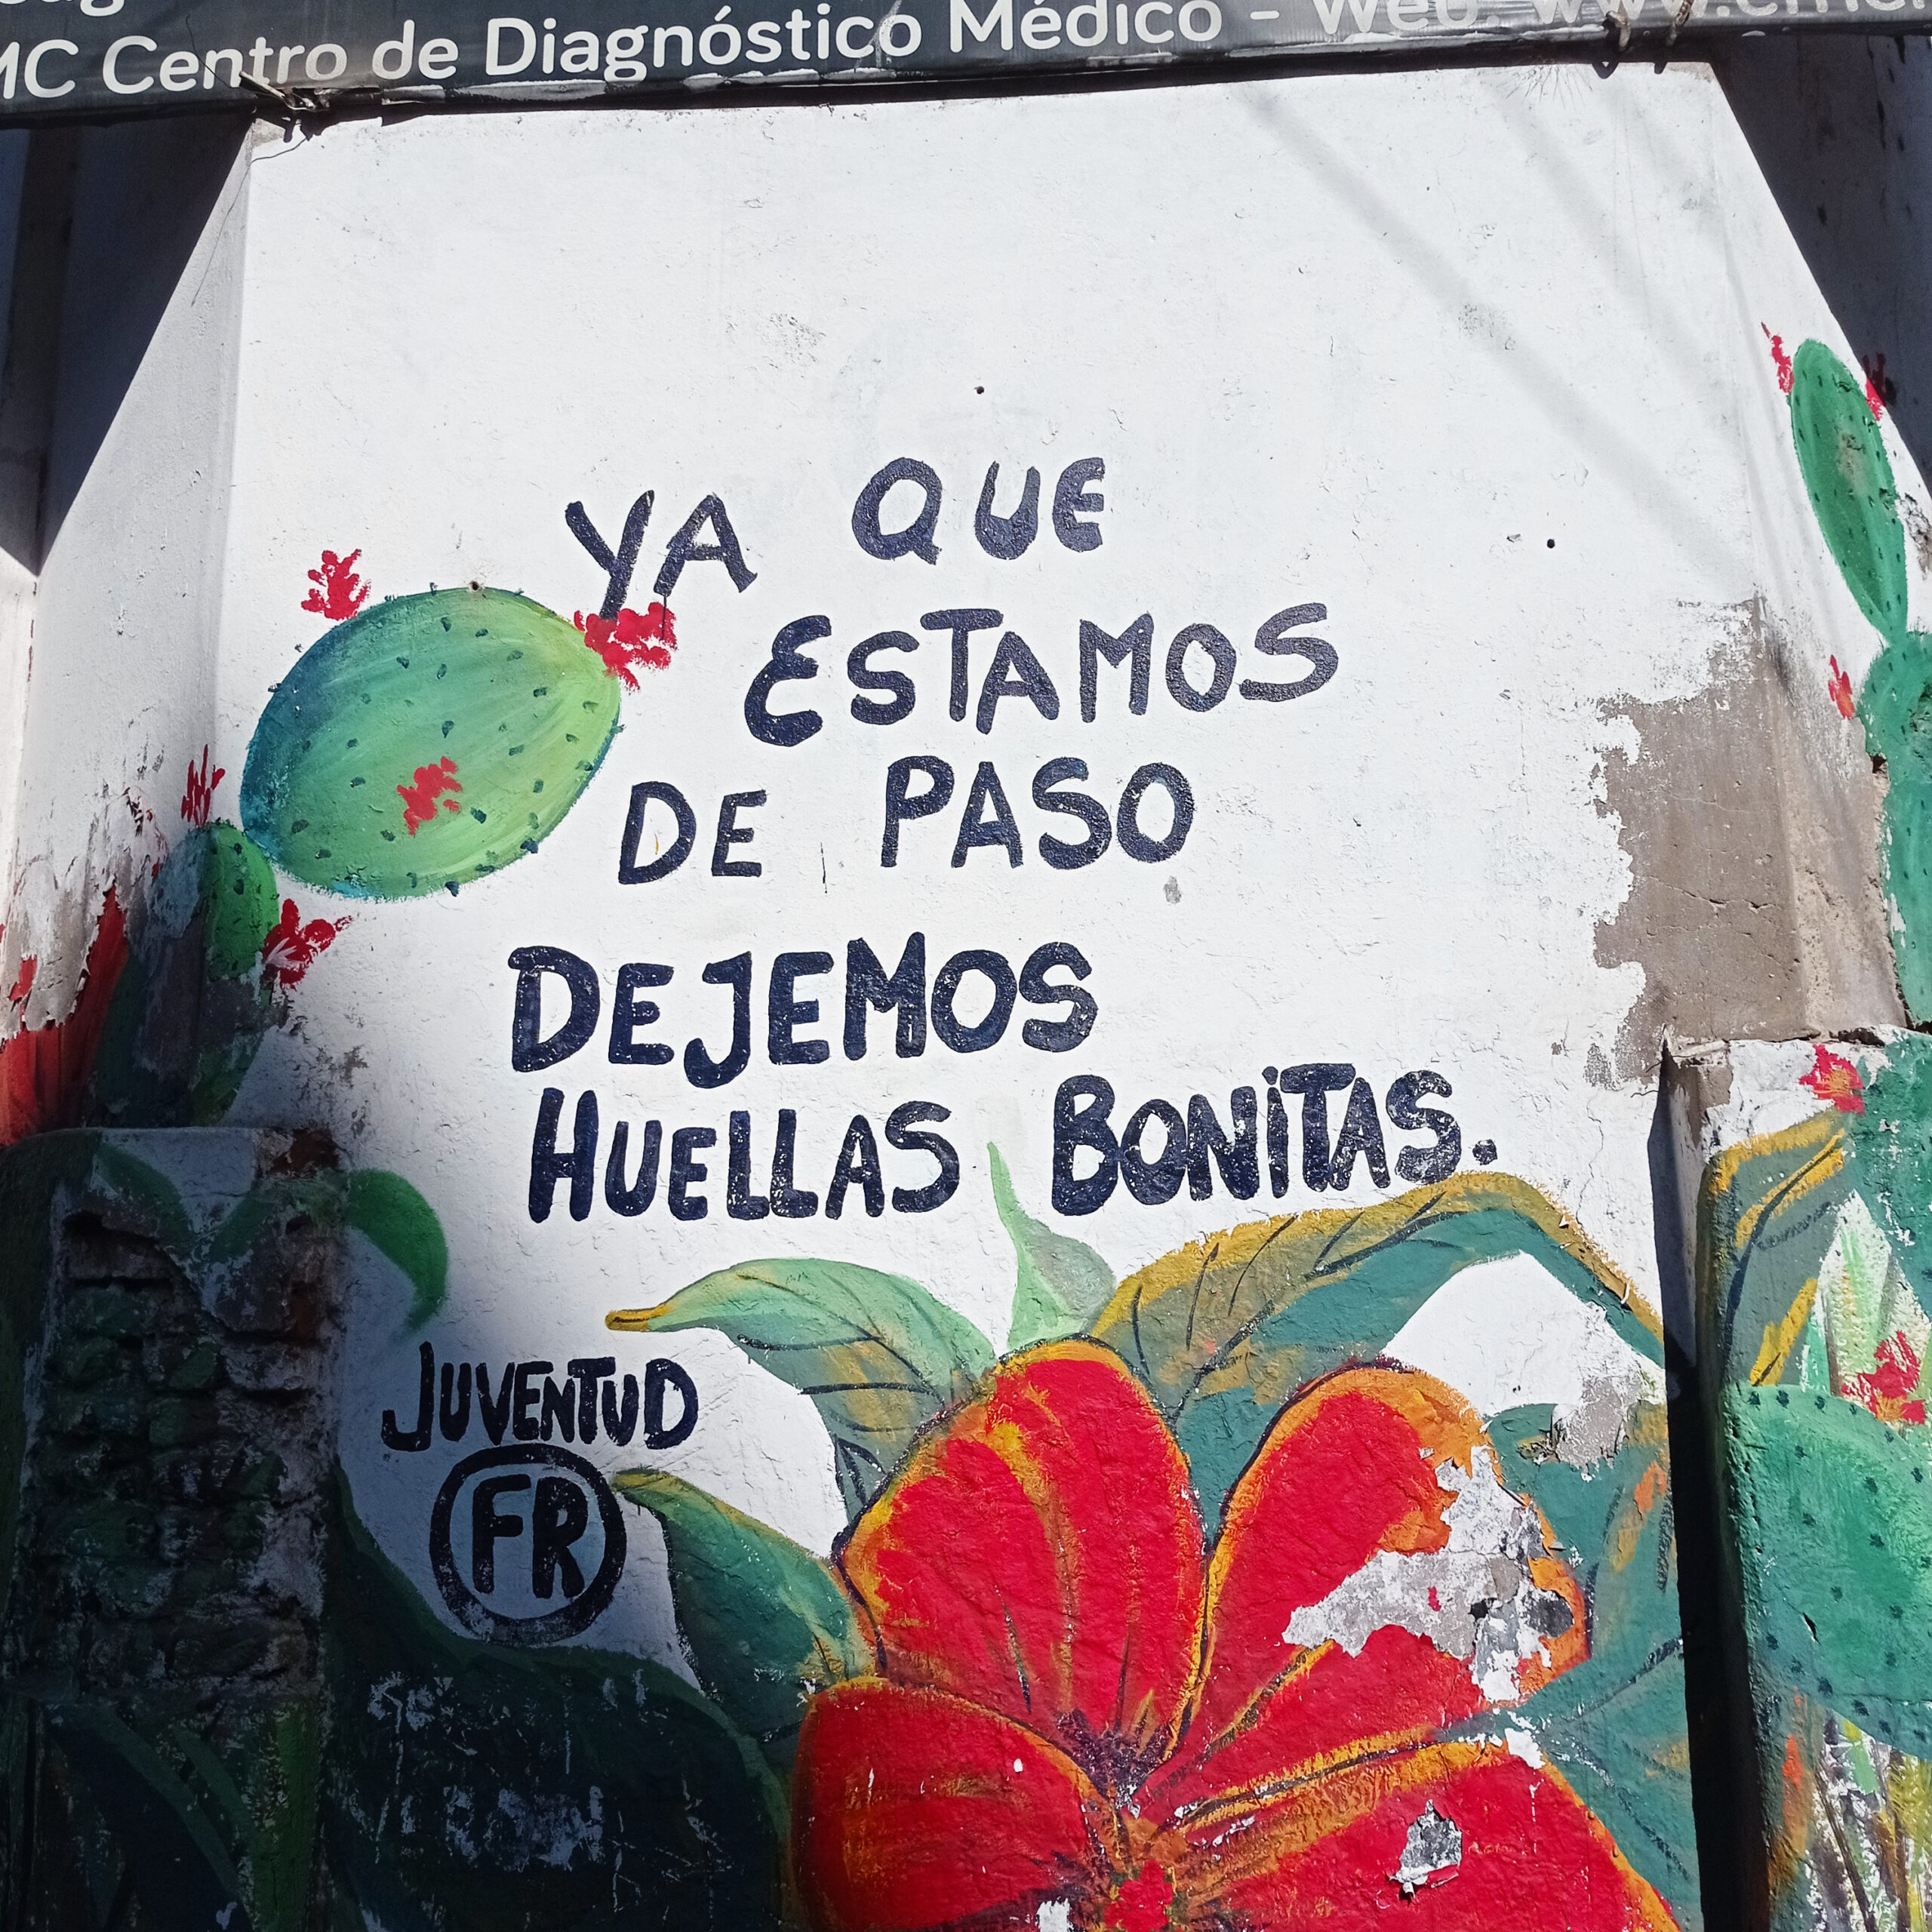 MC Centro de Diagnóstico Médico - Web:
YA QUE
ESTAMOS
DE PASO
DEJEMOS
HUELLAS BONITAS.
JUVENTUD
FR